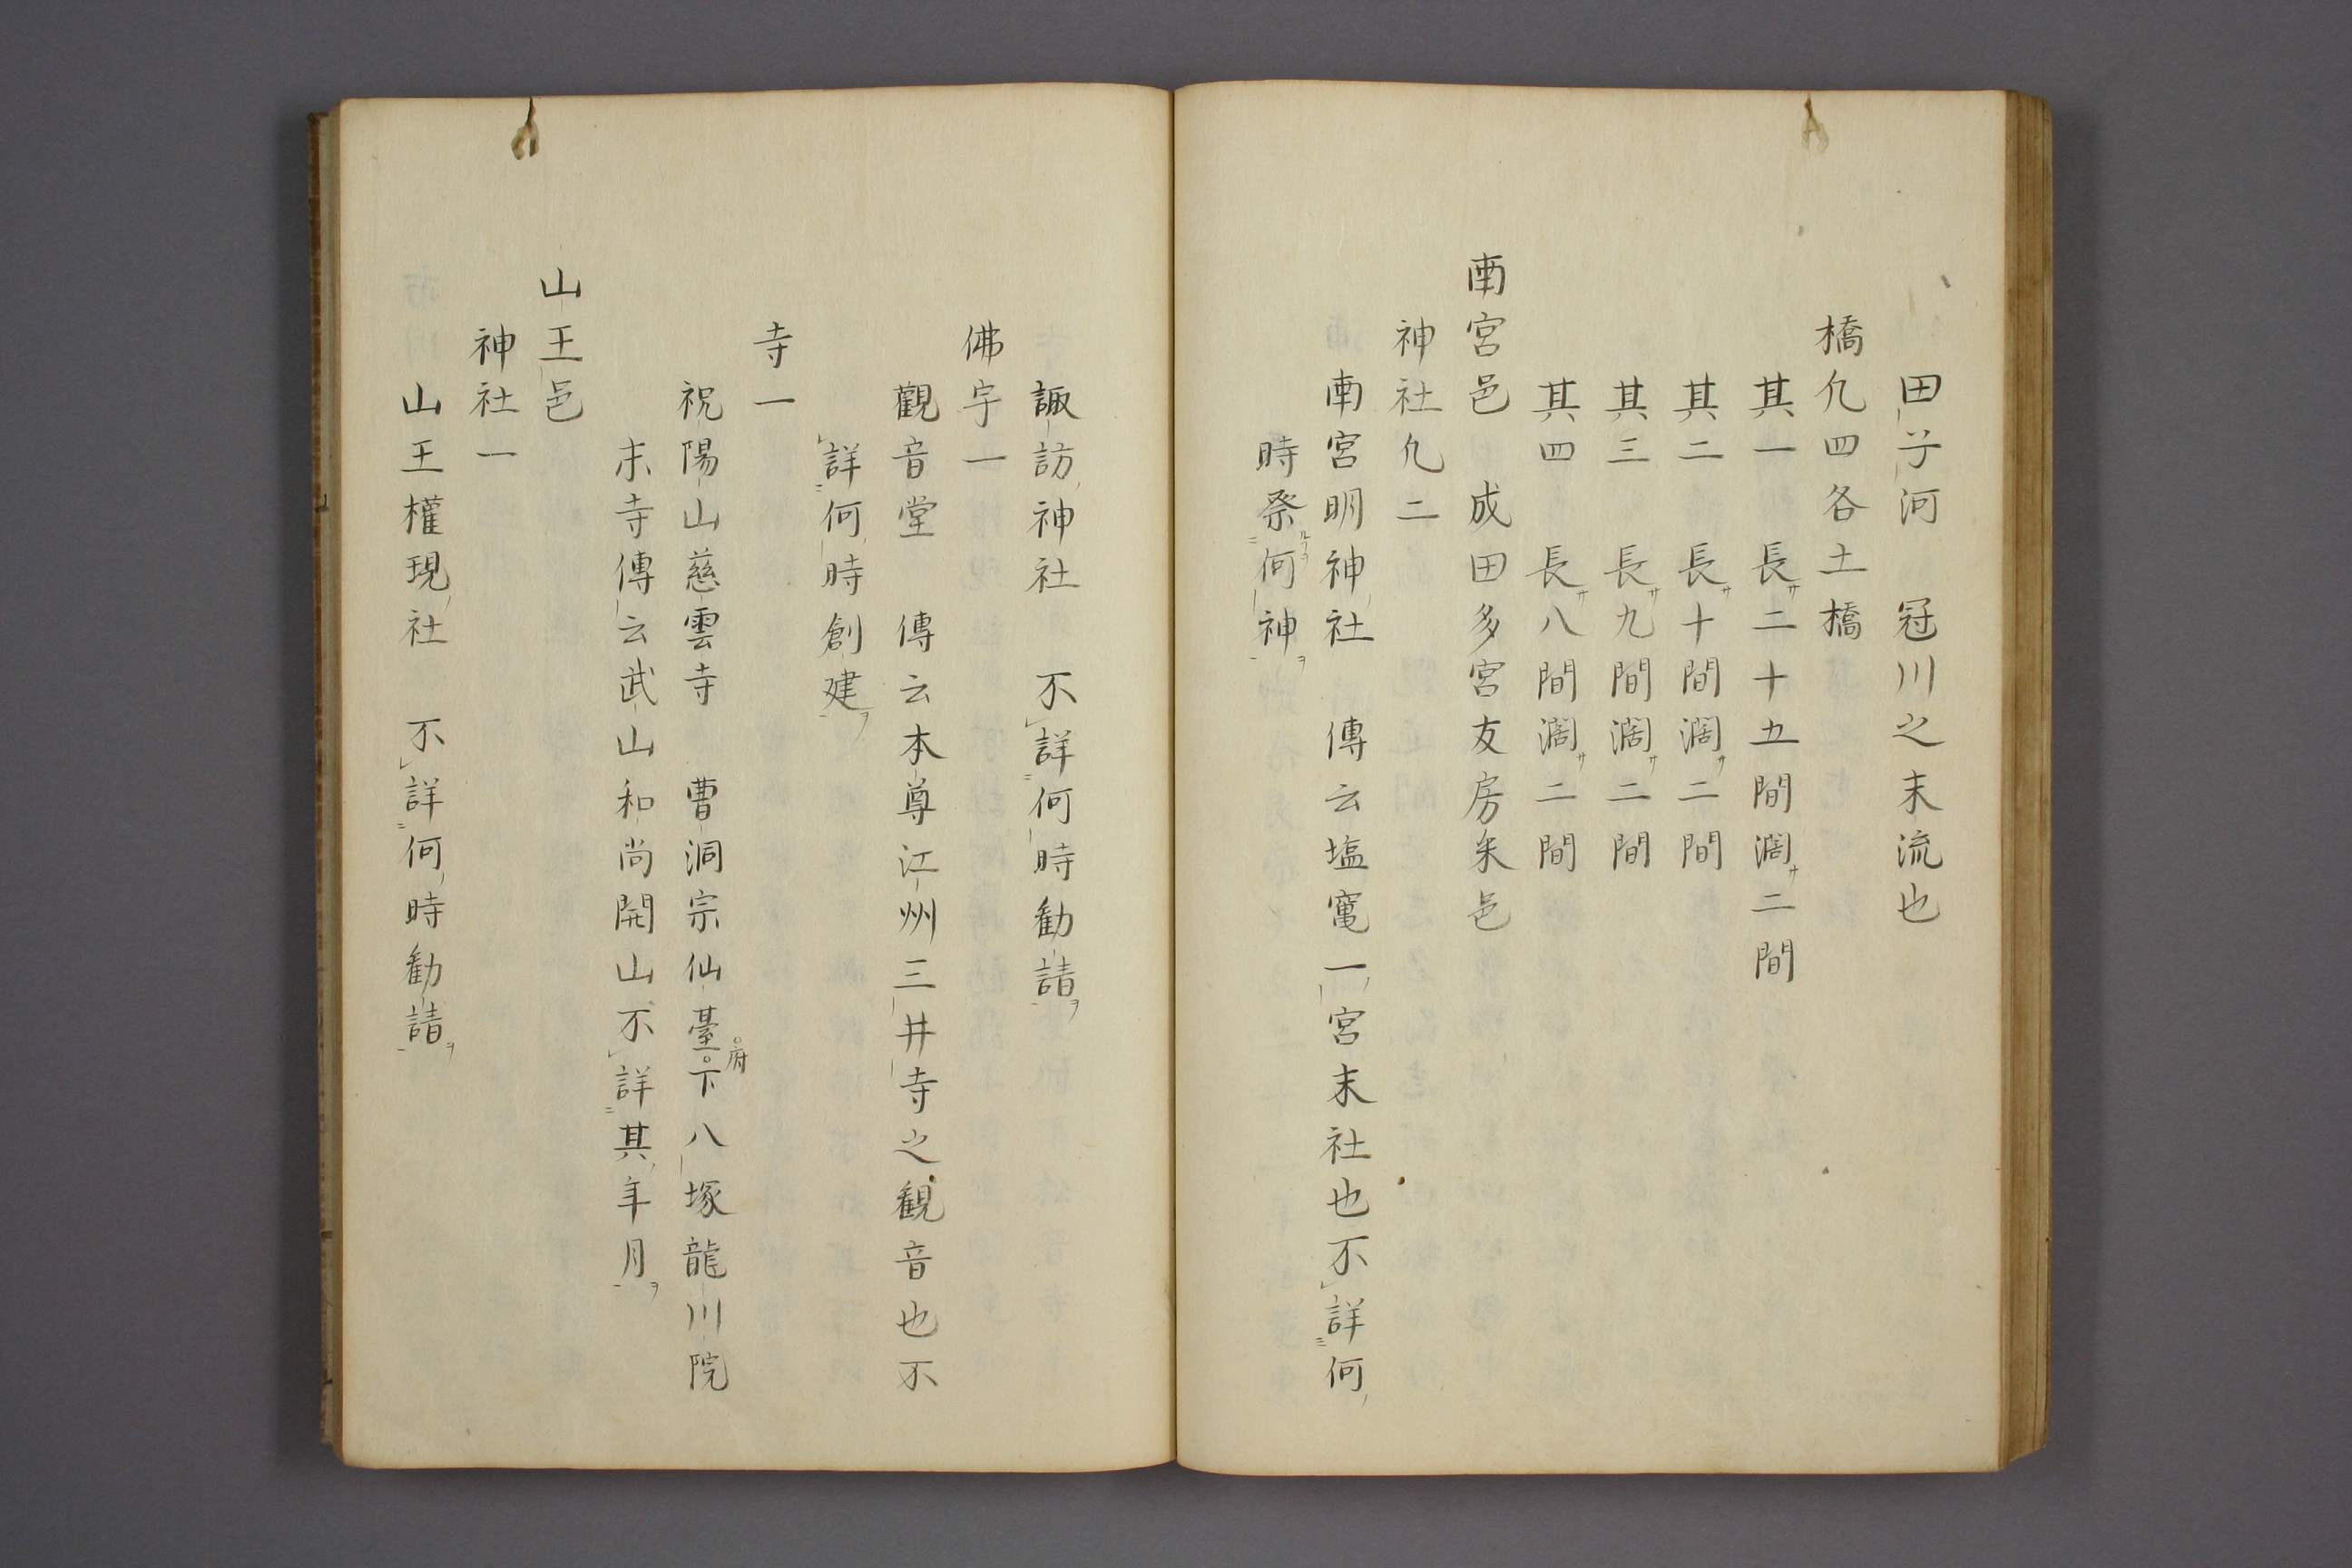 田子河　冠川之末流也
橋凢四各土橋
其一　長サ二十五間濶サ二間
其二　長サ十間濶サ二間
其三　長サ九間濶サ二間
其四　長サ八間濶サ二間
南宮邑　成田多宮友房釆邑
神社凢二
南宮明神社　傳云塩竃一宮末社也不レ詳三何ノ
時祭二ルヲ何ノ神一ヲ
諏訪神社　不レ詳二何ノ時勧請一ヲ
佛宇一
觀音堂　傳云本尊江州三井寺之観音也不
レ詳二何ノ時創建一ヲ
寺一
祝陽山慈雲寺　曹洞宗仙臺府下八塚龍川院
末寺傳云武山和尚開山不レ詳二其ノ年月一ヲ
山王邑
神社一
山王權現ノ社　不レ詳二何ノ時勧請一ヲ